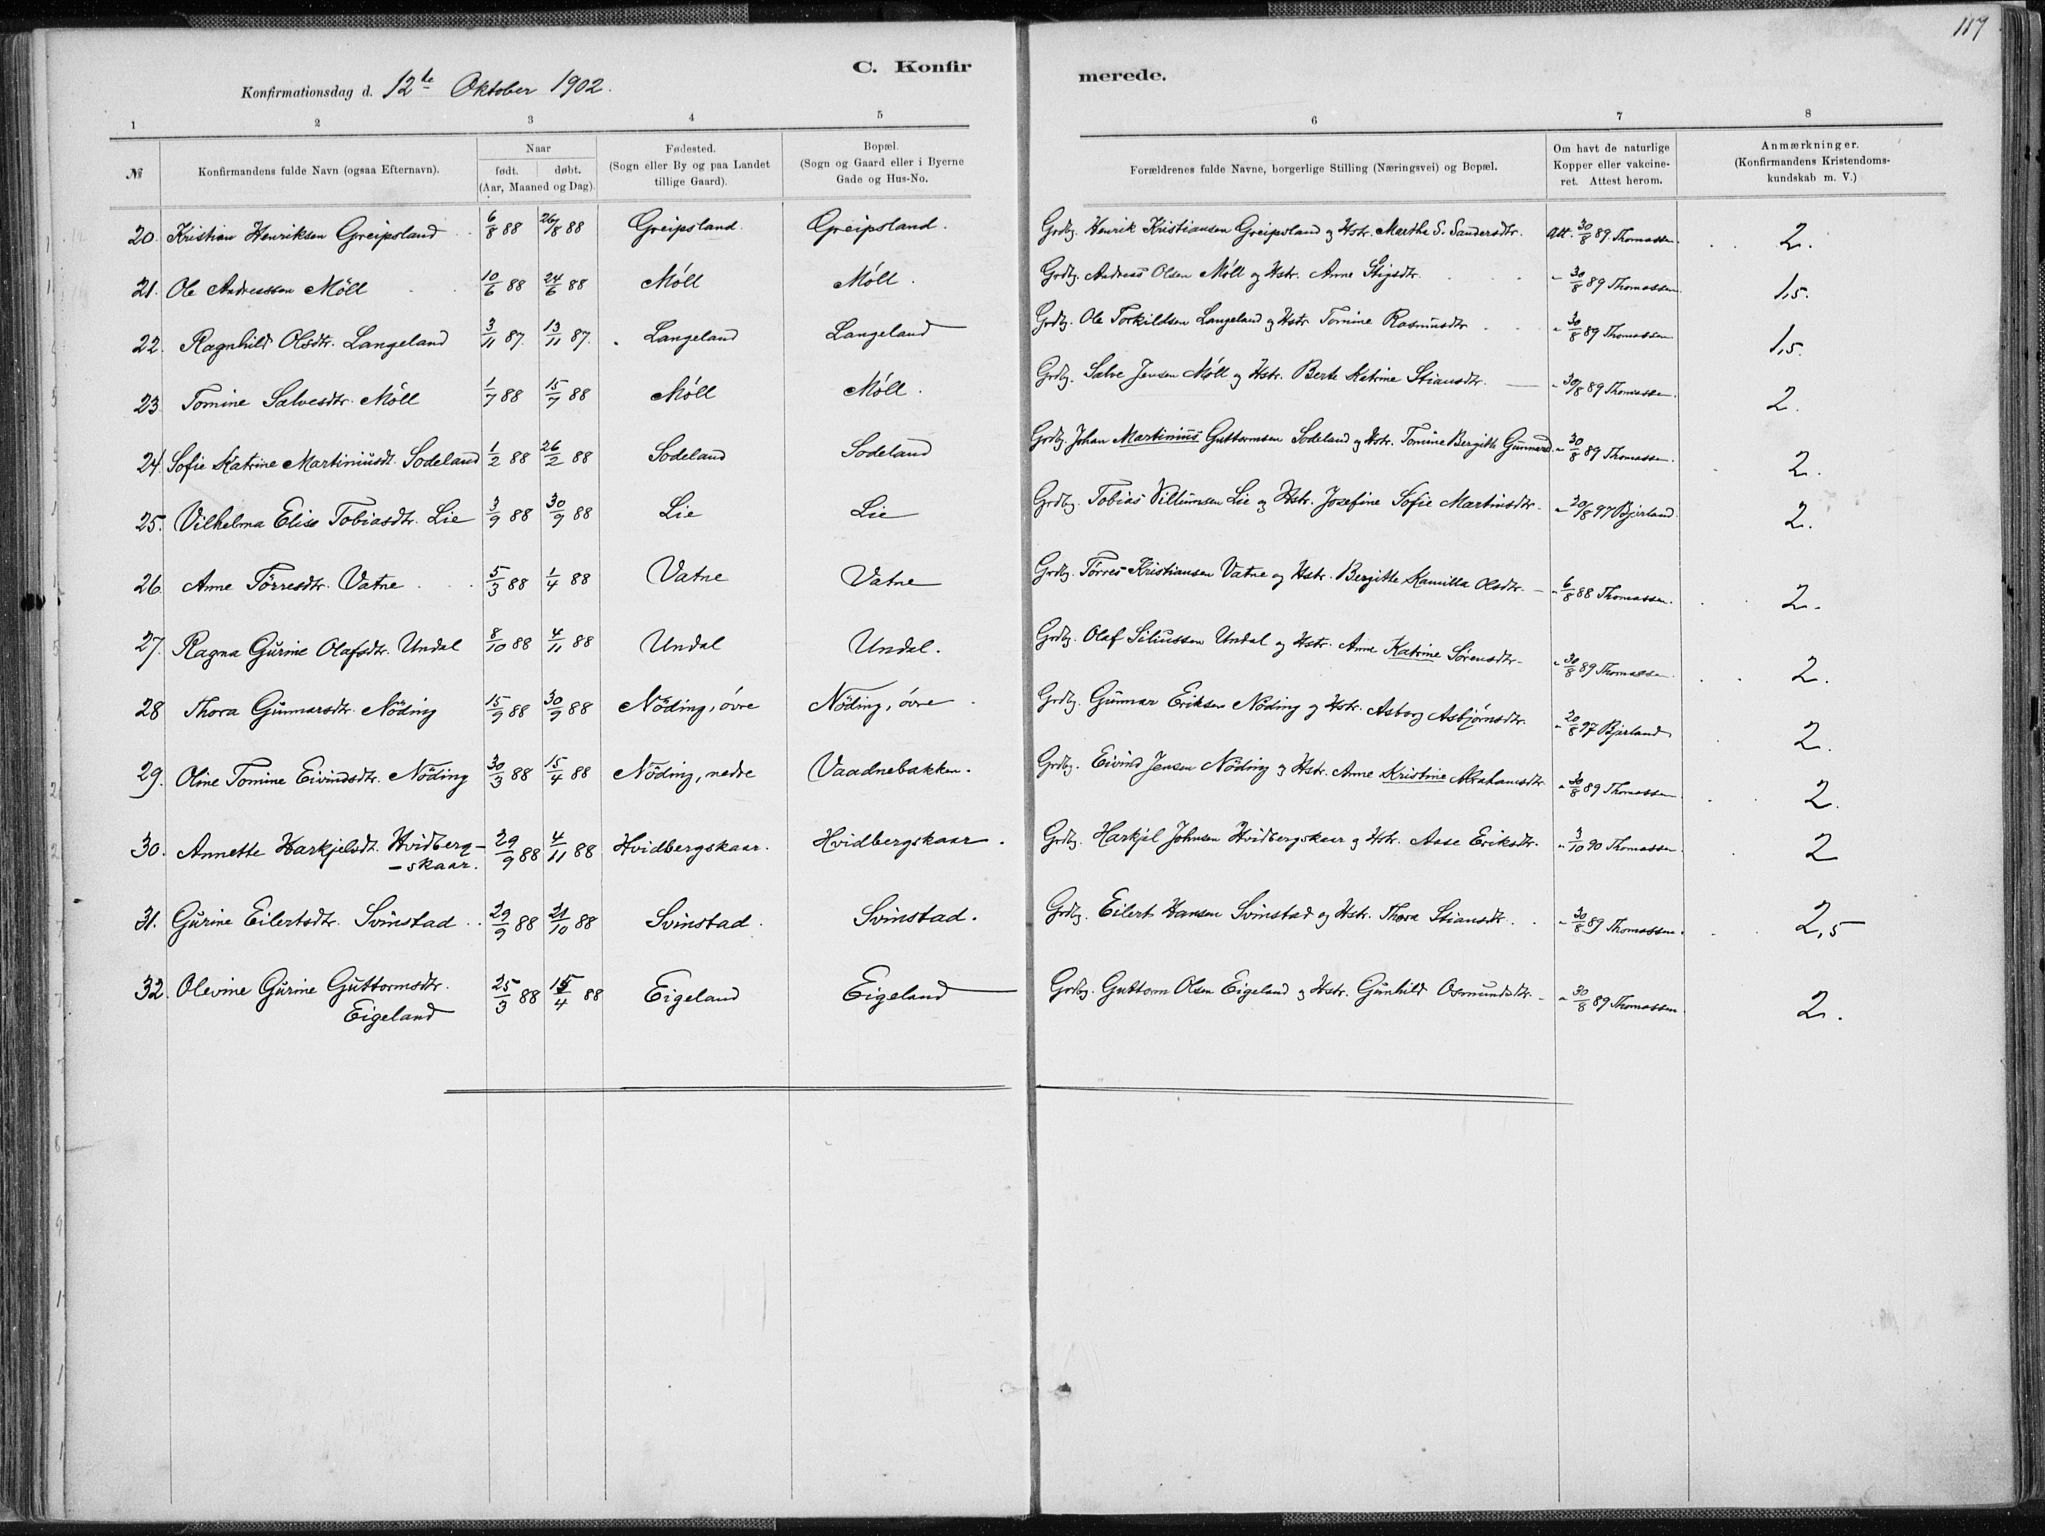 117
C. Konfirmerede.
Konfirmationsdag d. 12te Oktober 1902.
1 2 3 4 5 6 7 8
№ Konfirmandens fulde Navn (ogsaa Efternavn). Naar født. døbt. (Aar, Maaned og Dag). Fødested. (Sogn eller By og paa Landet tillige Gaard). Bopæl. (Sogn og Gaard eller i Byerne Gade og Hus-No. Forældrenes fulde Navne, borgerlige Stilling (Næringsvei) og Bopæl. Om havt de naturlige Kopper eller vakcineret. Attest herom. Anmærkninger. (Konfirmandens Kristendomskundskab m. V.)
20. Kristian Henriksen Greipsland 6/8 88 26/8 88 Greipsland. Greipsland. Grdbg. Henrik Kristiansen Greipsland og Hstr. Marthe S. Sandersdtr. Att. 30/8 89. Thomassen. 2.
21. Ole Andreassen Móll 10/6 88 24/6 88 Móll Móll. Grdbg. Andreas Olsen Móll og Hstr. Anne Stigsdtr. " 30/8 89 Thomassen. 1,5.
22. Ragnhild Olsdtr. Langeland 3/11 87. 13/11 87. Langeland Langeland Grdbg. Ole Torkildsen Langeland og Hstr. Tomine Rasmusdtr " 30/8 89 Thomassen 1,5.
23. Tomine Salvesdtr. Móll 1/7 88 15/7 88 Móll Móll. Grdbg. Salve Jensen Móll og Hstr. Berte Katrine Stiansdtr. " 30/8 89 Thomassen. 2.
24. Sofie Katrine Martiniusdt. Sodeland 1/2 88 26/2 88 Sodeland Sodeland Grdbg. Johan Martinius Guttormsen Sodeland og Hstr. Tomine Bergitte Gunnarsd. " 30/8 89 Thomassen. 2.
25. Vilhelma Elise Tobiasdtr. Lie 3/9 88 30/9 88 Lie Lie Grdbg. Tobias Villumsen Lie og Hstr. Josefine Sofie Martinsdtr. " 20/8 97 Bjerland. 2.
26. Anne Tórresdtr. Vatne 5/3 88 1/4 88 Vatne Vatne Grdbg. Tórres Kristiansen Vatne og Hstr. Bergitte Kamilla Olsdtr. " 6/8 88 Thomassen. 2.
27. Ragna Gurine Olafsdtr. Undal 8/10 88 4/11 88 Undal Undal. Grdbg. Olaf Siliussen Undal og Hstr. Anne Katrine Sórensdtr. " 30/8 89 Thomassen. 2.
28 Thora Gunnarsdtr. Nóding 15/9 88 30/9 88 Nóding, óvre Nóding, óvre Grdbg. Gunnar Eriksen Nóding og Hstr. Asborg Asbjórnsdtr. " 20/8 97 Bjerland. 2.
29. Oline Tomine Eivindsdtr. Nóding 30/3 88 15/4 88 Nóding, nedre Vaadnebakken. Grdbg. Eivind Jensen Nóding og Hstr. Anne Kristine Abrahamsdtr. " 30/8 89 Thomassen 2.
30. Annette Harkjelsdt. Hvidberg-skaar. 29/9 88 4/11 88 Hvidbergskaar. Hvidbergskaar. Grdbg. Harkjel Johnsen Hvidbergskaar og Hstr. Aase Eriksdtr. " 3/10 90 Thomassen. 2
31. Gurine Eilertsdtr. Svinstad 29/9 88 21/10 88 Svinstad. Svinstad. Grdbg. Eilert Hansen Svinstad og Hstr. Thora Stiansdtr. " 30/8 89 Thomassen. 2,5
32. Olevine Gurine Guttormsdtr. Eigeland 25/3 88 15/4 88 Eigeland Eigeland Grdbg. Guttorm Olsen Eigeland og Hstr. Gunhild Osmundsdtr. " 30/8 89 Thomassen. 2.